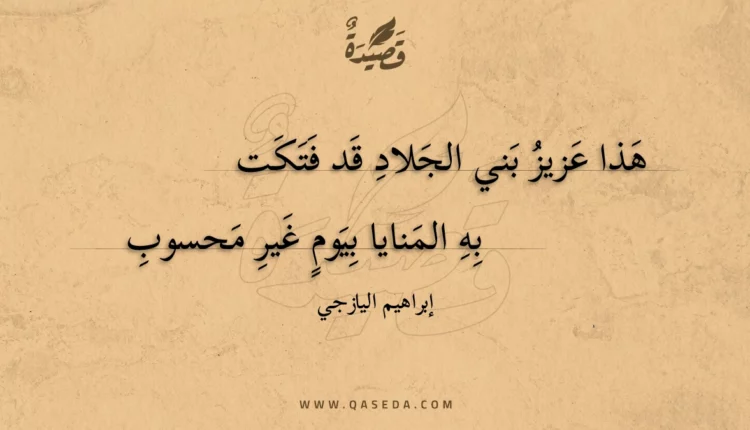 قَصِيدَةٌ
هَذا عَزيزُ بَني الجَلادِ قَد فَتَكَت
بِهِ المَنايا بِيَومٍ غَيرِ مَحسوبِ
إبراهيم اليازجي
WWW.QASEDA.COM